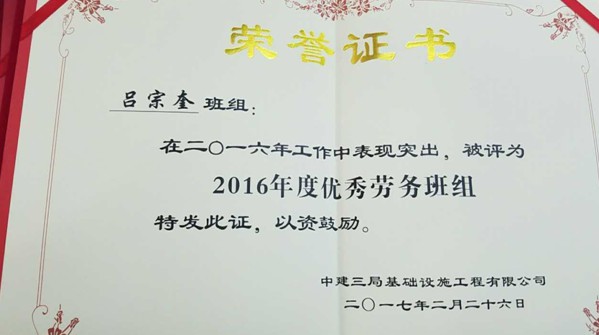 荣誉证书
吕宗奎班组：
在二〇一六年工作中表现突出，被评为
2016年度优秀劳务班组
特发此证，以资鼓励。
中建三局基础设施工程有限公司
二〇一七年二月二十六日